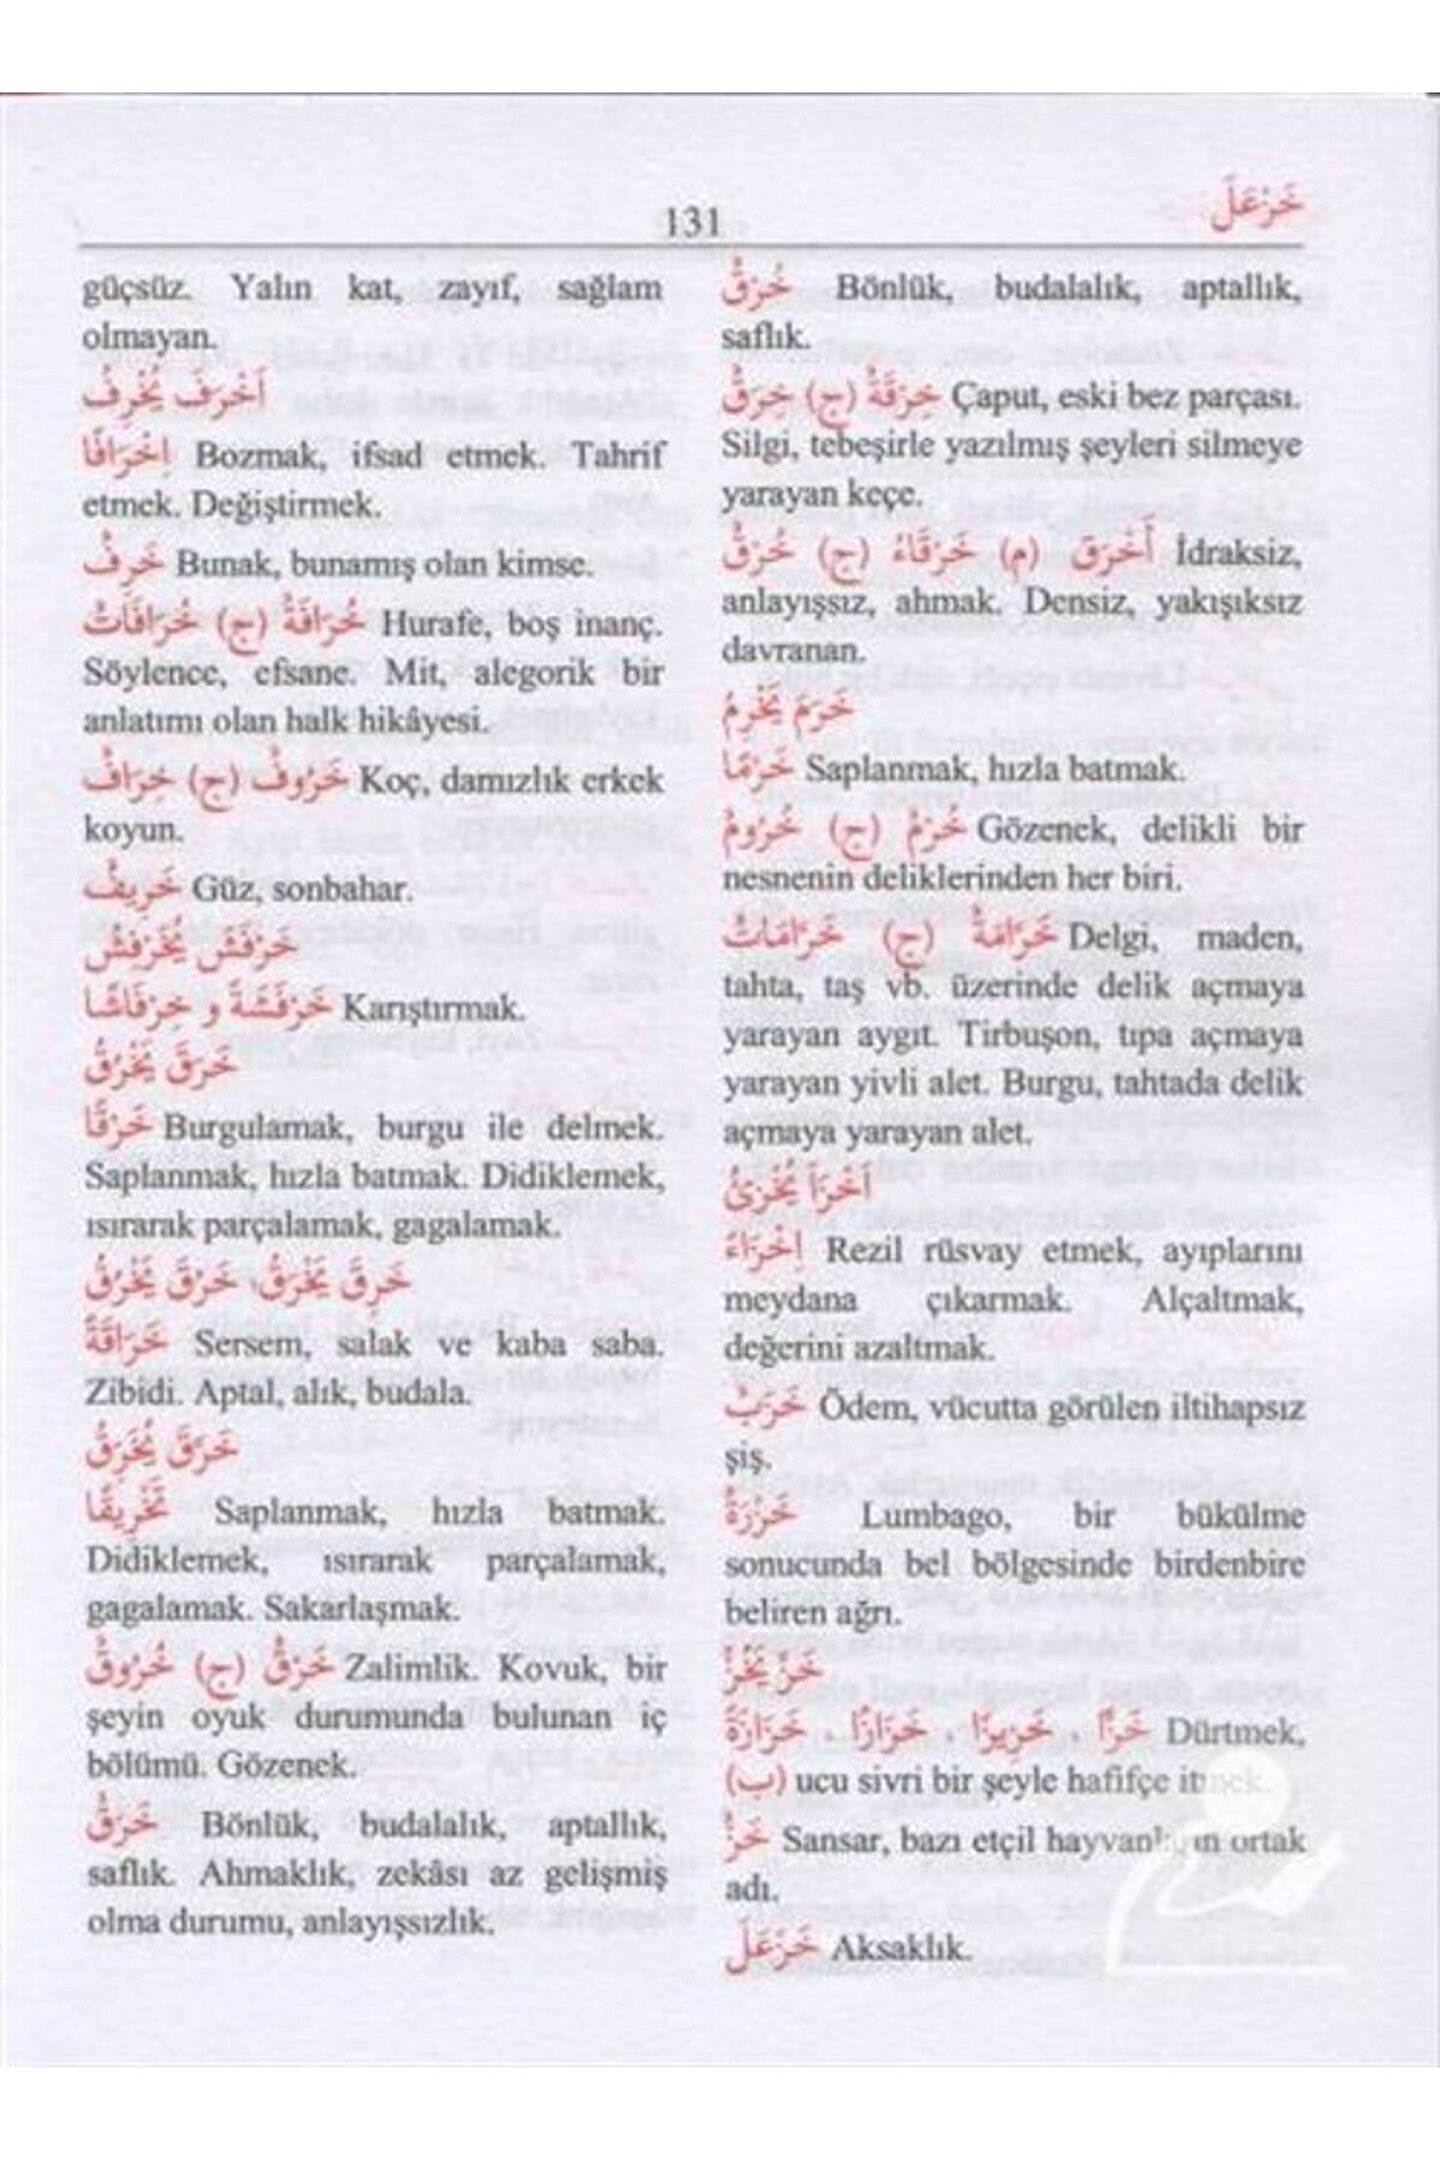 131
خَزْعَلَ
güçsüz. Yalın kat, zayıf, sağlam
olmayan.
اَخْرَفَ يُخْرِفُ
اِخْرَافًا Bozmak, ifsad etmek. Tahrif
etmek. Değiştirmek.
خَرِفٌ Bunak, bunamış olan kimse.
خُرَافَةٌ (ج) خُرَافَاتٌ Hurafe, boş inanç.
Söylence, efsane. Mit, alegorik bir
anlatımı olan halk hikâyesi.
خَرُوفٌ (ج) خِرَافٌ Koç, damızlık erkek
koyun.
خَرِيفٌ Güz, sonbahar.
خَرْفَشَ يُخَرْفِشُ
خَرْفَشَةً و خِرْفَاشًا Karıştırmak.
خَرَقَ يَخْرُقُ
خَرْقًا Burgulamak, burgu ile delmek.
Saplanmak, hızla batmak. Didiklemek,
ısırarak parçalamak, gagalamak.
خَرِقَ يَخْرَقُ، خَرُقَ يَخْرُقُ
خَرَاقَةً Sersem, salak ve kaba saba.
Zibidi. Aptal, alık, budala.
خَرَّقَ يُخَرِّقُ
تَخْرِيقًا Saplanmak, hızla batmak.
Didiklemek, ısırarak parçalamak,
gagalamak. Sakarlaşmak.
خَرْقٌ (ج) خُرُوقٌ Zalimlik. Kovuk, bir
şeyin oyuk durumunda bulunan iç
bölümü. Gözenek.
خَرَقٌ Bönlük, budalalık, aptallık,
saflık. Ahmaklık, zekâsı az gelişmiş
olma durumu, anlayışsızlık.
خُرْقٌ Bönlük, budalalık, aptallık,
saflık.
خِرْقَةٌ (ج) خِرَقٌ Çaput, eski bez parçası.
Silgi, tebeşirle yazılmış şeyleri silmeye
yarayan keçe.
أَخْرَق (م) خَرْقَاءُ (ج) خُرْقٌ İdraksiz,
anlayışsız, ahmak. Densiz, yakışıksız
davranan.
خَرَمَ يَخْرِمُ
خَرْمًا Saplanmak, hızla batmak.
خُرْمٌ (ج) خُرُومٌ Gözenek, delikli bir
nesnenin deliklerinden her biri.
خَرَّامَةٌ (ج) خَرَّامَاتٌ Delgi, maden,
tahta, taş vb. üzerinde delik açmaya
yarayan aygıt. Tirbuşon, tıpa açmaya
yarayan yivli alet. Burgu, tahtada delik
açmaya yarayan alet.
اَخْزَأَ يُخْزِئُ
اِخْزَاءً Rezil rüsvay etmek, ayıplarını
meydana çıkarmak. Alçaltmak,
değerini azaltmak.
خَزَبٌ Ödem, vücutta görülen iltihapsız
şiş.
خَزْرَةٌ Lumbago, bir bükülme
sonucunda bel bölgesinde birdenbire
beliren ağrı.
خَزَّ يَخُزُّ
خَزًّا ، خَزِيزًا ، خَزَازًا ، خَزَازَةً Dürtmek,
(ب) ucu sivri bir şeyle hafifçe itmek.
خَزٌّ Sansar, bazı etçil hayvanların ortak
adı.
خَزْعَلَ Aksaklık.